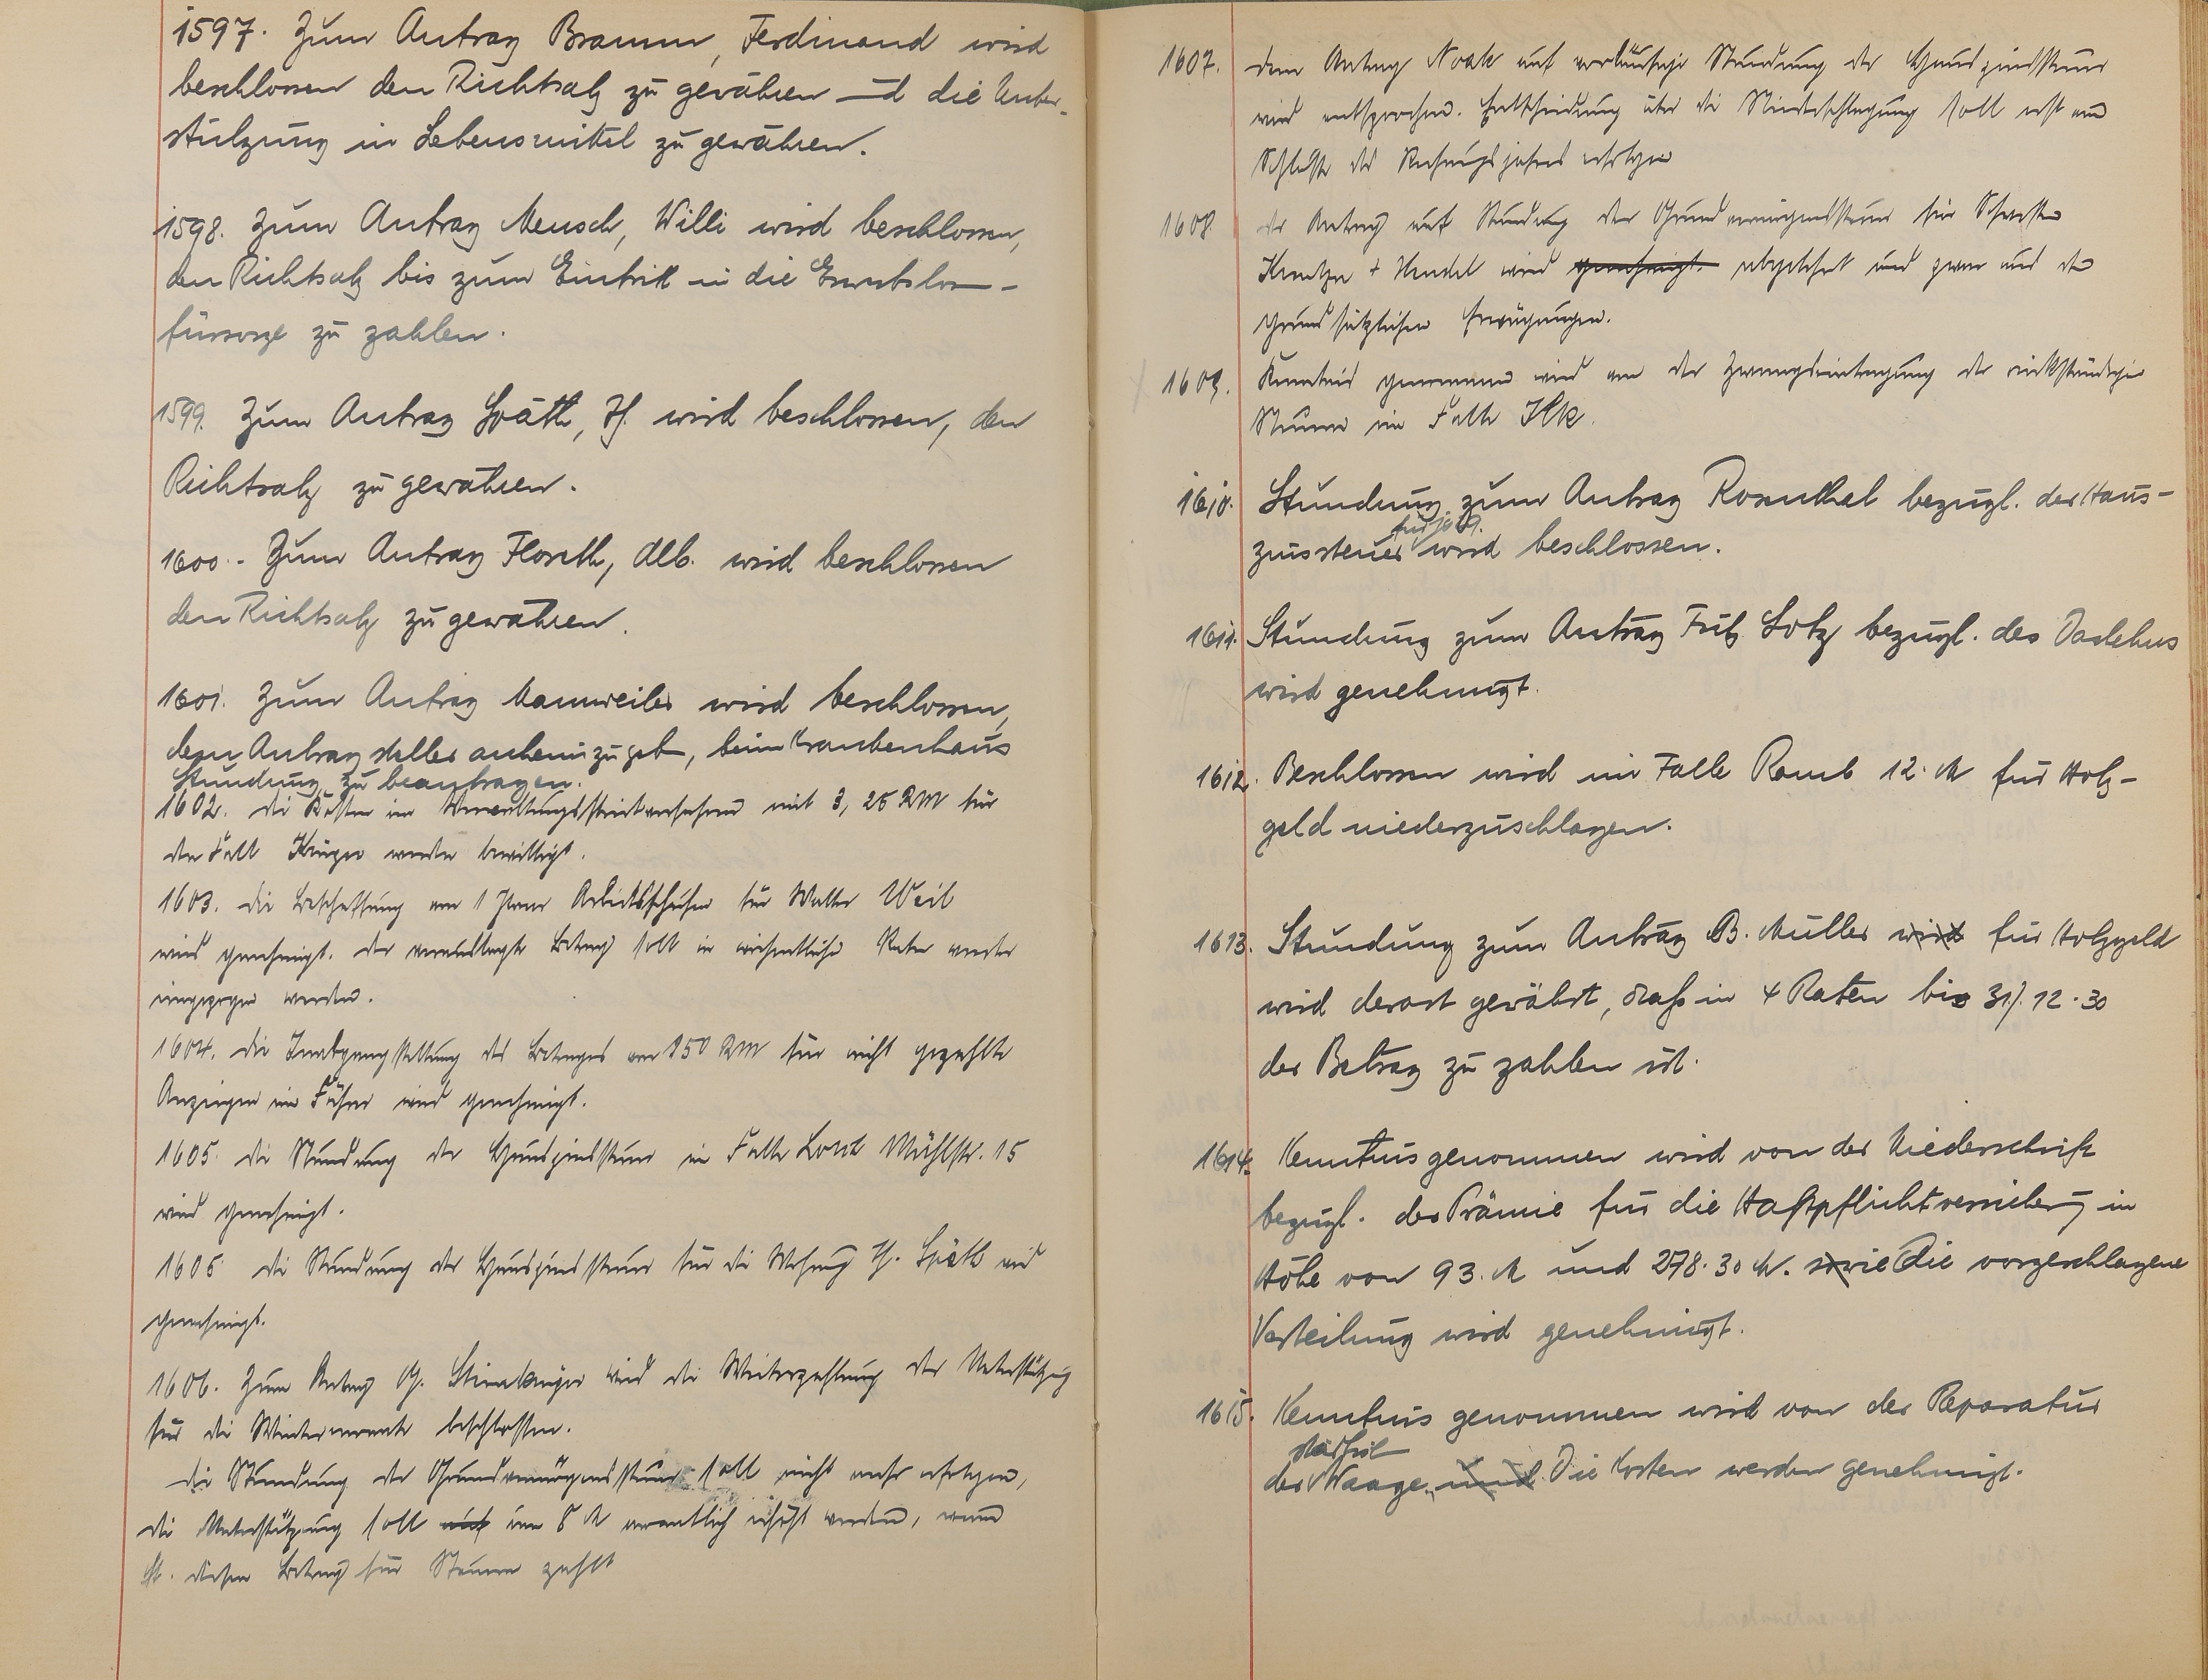 1597. Zum Antrag Bramm, Ferdinand wird
beschlossen den Richtsatz zu gewähren und die Unter-
stützung in Lebensmittel zu gewähren.
1598. Zum Antrag Mensch, Willi wird beschlossen,
den Richtsatz bis zum Eintritt in die Erwerbslosen-
fürsorge zu zahlen.
1599. Zum Antrag Späth, Jh. wird beschlossen, den
Richtsatz zu gewähren.
1600.- Zum Antrag Floreth, Alb. wird beschlossen
den Richtsatz zu gewähren.
1601. Zum Antrag Mannweiler wird beschlossen,
dem Antragsteller anheimzugeben, beim Krankenhaus
Stundung zu beantragen.
1602. Die Kosten im Verwaltungsstreitverfahren mit 3,25 RM für
den Fall Krüger werden bewilligt.
1603. Die Beschaffung von 1 Paar Arbeitsschuhen für Walter Weil
wird genehmigt. Der verauslagte Betrag soll in wöchentlichen Raten wieder
eingezogen werden.
1604. Die Inabgangstellung des Betrages von 150 RM für nicht gezahlte
Anzeigen im Führer wird genehmigt.
1605. Die Stundung der Hauszinssteuer im Falle Lorch Mühlstr. 15
wird genehmigt.
1605 Die Stundung der Hauszinssteuer für die Wohnung H. Späth wird
genehmigt.
1606. Zum Antrag G. Steinkrüger wird die Weiterzahlung der Unterstützung
für die Wintermonate beschlossen.
Die Stundung der Grundvermögenssteuer soll nicht mehr erfolgen,
die Unterstützung soll auf um 8 M monatlich erhöht werden, wenn
St. diesen Betrag für Steuern zahlt
1607. Dem Antrag Noak auf vorläufige Stundung der Hauszinssteuer
wird entsprochen. Entscheidung über die Niederschlagung soll erst am
Schlusse des Rechnungsjahres erfolgen
1608 Der Antrag auf Stundung der Grundvermögenssteuer für Schwestern
Kreutzer + Hendel wird genehmigt. abgelehnt und zwar aus den
grundsätzlichen Erwägungen.
1609. Kenntnis genommen wird von der Zwangseintragung der rückständigen
Steuern im Falle Ilk.
1610. Stundung zum Antrag Rosenthal bezügl. der Haus-
für 1929.
zinssteuer wird beschlossen.
1611. Stundung zum Antrag Fritz Lotz bezügl. des Darlehns
wird genehmigt.
1612. Beschlossen wird im Falle Ramb 12. M für Holz-
geld niederzuschlagen.
1613. Stundung zum Antrag B. Müller wird für Holzgeld
wird derart gewährt, daß in 4 Raten bis 31. 12. 30
der Betrag zu zahlen ist.
1614. Kenntnis genommen wird von der Niederschrift
bezügl. der Prämie für die Haftpflichtversicherung in
Höhe von 93. M und 278.30 M. sowie Die vorgeschlagene
Verteilung wird genehmigt.
1615. Kenntnis genommen wird von der Reparatur
der Waage. und Die Kosten werden genehmigt.